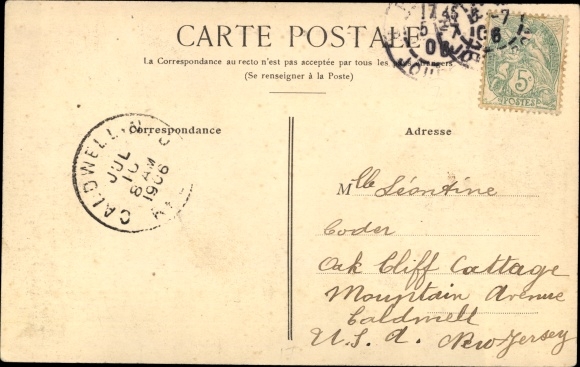 CARTE POSTALE
La Correspondance au recto n'est pas acceptée par tous les pays étrangers
(Se renseigner à la Poste)
17 45
5 -7
06
5 POSTES
Correspondance
Adresse
CALDWELL, N.J.
JUL
10
8 AM
1906
Mlle Léontine
Coder
Oak Cliff Cottage
Mountain Avenue
Caldwell
U.S.A. New-Jersey